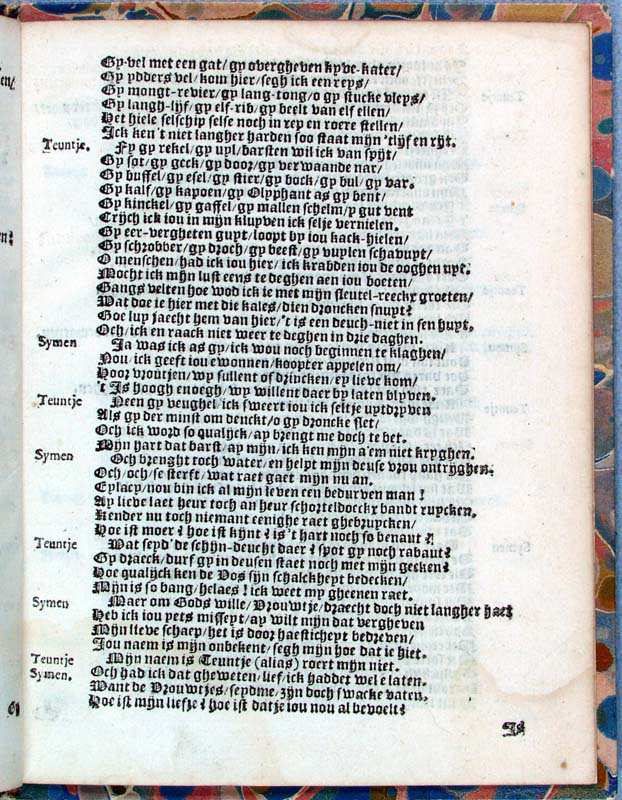 Gy-vel met een gat/ gy overgheven kyve-kater/
Gy ydders vel/ kom hier/ segh ick een reys/
Gy mongt-revier/ gy lang-tong/ o gy stucke vleys/
Gy langh-lijf/ gy elf-rib/ gy beelt van elf ellen/
Het hiele selschip selse noch in rep en roere stellen/
Ick ken 't niet langher harden soo staat mijn 'tlijf en rijt.
Teuntje. Fy gy rekel/ gy uyl/ barsten wil ick van spijt/
Gy sot/ gy geck/ gy door/ gy verwaande nar/
Gy buffel/ gy esel/ gy stier/ gy bock/ gy bul/ gy var.
Gy kalf/ gy kapoen/ gy Olyphant as gy bent/
Gy kinckel/ gy gaffel/ gy mallen schelm/ y gut vent
Crijch ick iou in mijn kluyven ick selje vernielen.
Gy eer-vergheten guyt/ loopt by iou kack-hielen/
Gy schrobber/ gy droch/ gy beest/ gy vuylen schavuyt/
O menschen/ had ick iou hier/ ick krabden iou de ooghen uyt.
Mocht ick mijn lust eens te deghen aen iou boeten/
Gangs velten hoe wod ick ie met mijn sleutel-reeckx groeten/
Wat doe ie hier met die kales/ dien droncken snuyt?
Goe luy jaecht hem van hier/ 't is een deuch-niet in sen huyt.
Och/ ick en raack niet weer te deghen in drie daghen.
Symen Ja was ick as gy/ ick wou noch beginnen te klaghen/
Nou/ ick geeft iou ewonnen/ koopter appelen om/
Hoor vroutjen/ wy sullent of drincken/ ey lieve kom/
't Is hoogh enoegh/ wy willent daer by laten blyven.
Teuntje Neen gy veughel/ ick sweert iou ick seltje uytdryven
Als gy der minst om denckt/ o gy droncke slet/
Och ick word so qualijck/ ay brengt me doch te bet.
Mijn hart dat barst/ ay mijn/ ick ken mijn a'em niet kryghen.
Symen Och brenght toch water/ en helpt mijn deuse vrou ontrijghen.
Och/ och/ se sterft/ wat raet gaet mijn nu an.
Eylacy/ nou bin ick al mijn leven een bedurven man!
Ay lieve laet heur toch an heur schorteldoeckx bandt ruycken.
Kender nu toch niemant eenighe raet ghebruycken/
Hoe ist moer? hoe ist kijnt? is 't hart noch so benaut?
Teuntje Wat seyd' de schijn-deucht daer? spot gy noch rabaut?
Gy draeck/ durf gy in deusen staet noch met mijn gecken?
Hoe qualijck ken de Vos sijn schalckheyt bedecken/
Mijn is so bang/ helaes! ick weet my gheenen raet.
Symen Maer om Gods wille/ Vrouwtje/ draecht doch niet langher haet
Heb ick iou yets misseyt/ ay wilt mijn dat vergheven
Mijn lieve schaep/ het is door haesticheyt bedreven/
Jou naem is mijn onbekent/ segh mijn hoe dat ie hiet.
Teuntje Mijn naem is Teuntje (alias) roert mijn niet.
Symen. Och had ick dat gheweten/ lief/ ick haddet wel e laten.
Want de Vrouwtjes/ seydme/ zijn doch swacke vaten.
Hoe ist mijn liefje? hoe ist datje iou nou al bevoelt?
Is